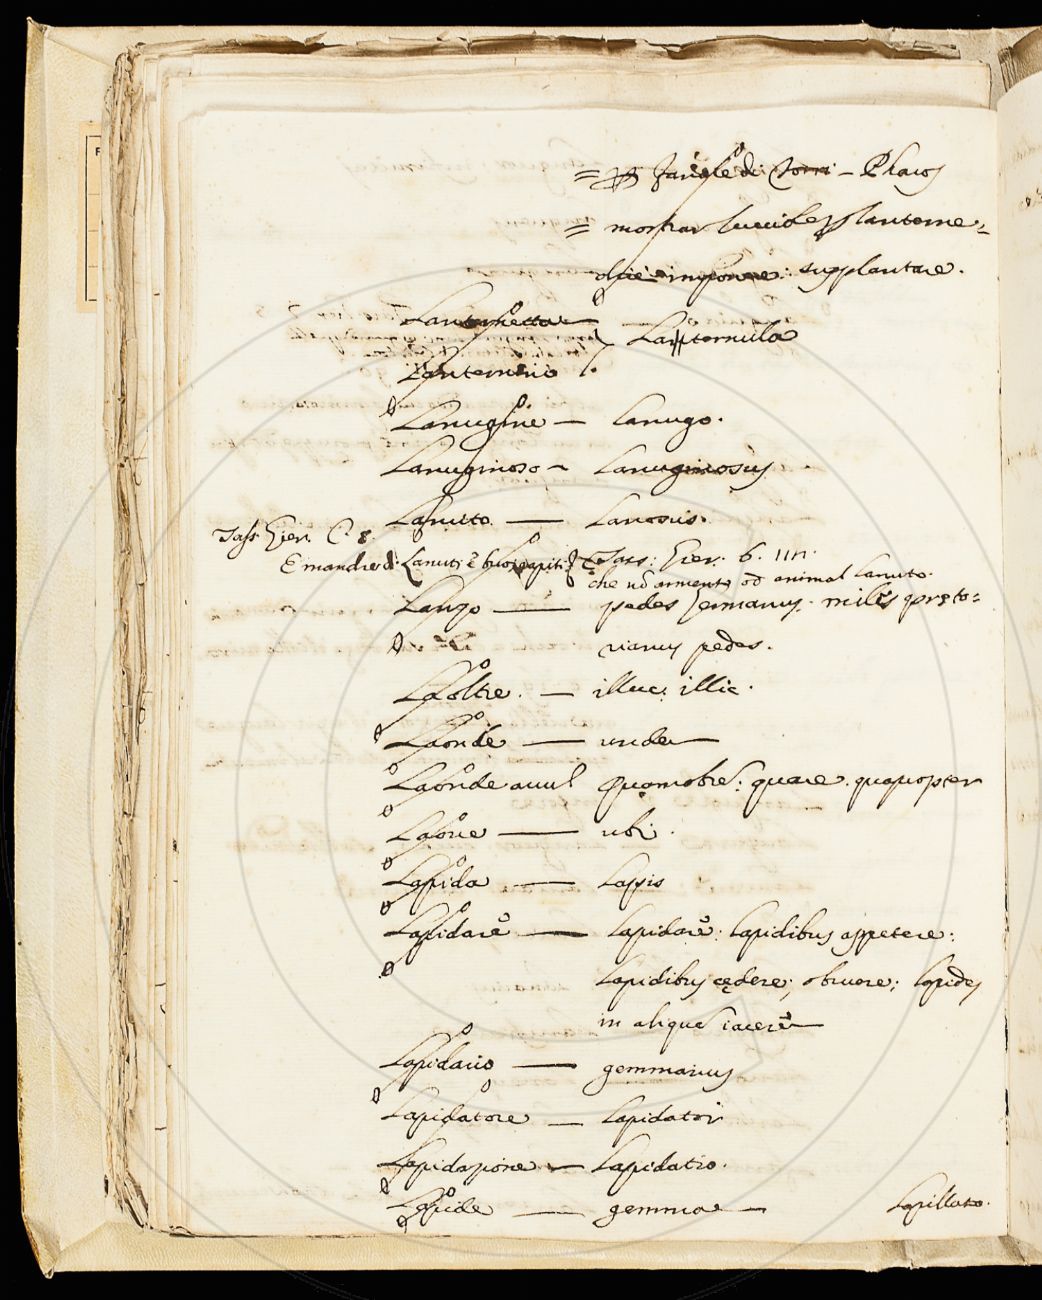 = di Torri - Pharos
= mostrar lucciole per lanterne =
imponere: supplantare.
Lanternetta
Lanternula
Lanternino
Lanugine — Lanugo.
Lanuginoso - Lanuginosus
Lanuto — Lanosus.
Tass. Gier. C. 8. Tass: Gier. 6. 111.
E mandre di Lanuti e buoi rapiti
che nõ armento od animal lanuto.
Lanzo — pedes germanus. miles pręto=
rianus pedes.
Là oltre. — illuc. illic.
Laonde — unde
Laonde avvl quamobrẽ: quare. quapropter
Laove — ubi.
Lapida — Lapis
Lapidare — Lapidare: lapidibus appetere:
Lapidibus cędere; obruere; lapides
in aliquẽ iacere
Lapidario — gemmarius
Lapidatore — Lapidator
Lapidazione — Lapidatio.
Lapide — gemma — Lapillato.